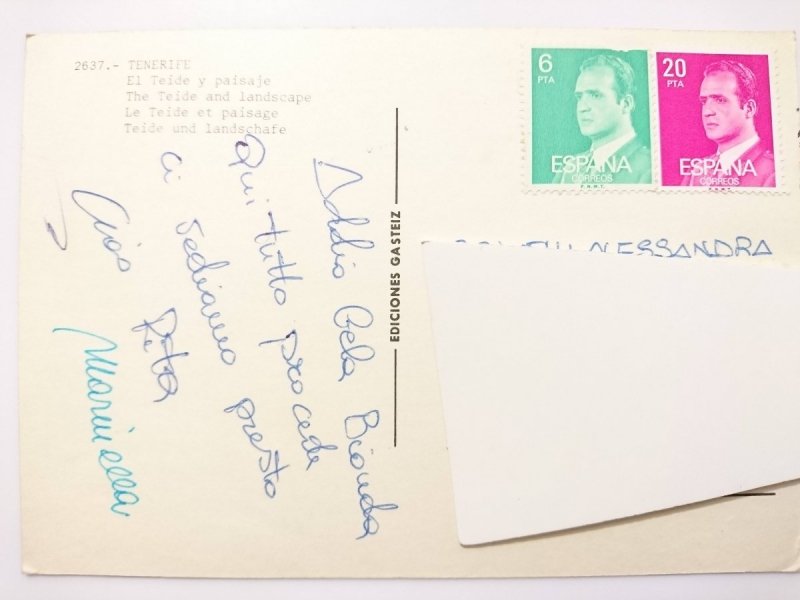 2637.- TENERIFE
El Teide y paisaje
The Teide and landscape
Le Teide et paisage
Teide und landschafe
Addio Bela Bionda
Qui tutto procede
ci vediamo presto
Ciao Rita
Mariella
EDICIONES GASTEIZ
6
PTA
ESPAÑA
CORREOS
F.N.M.T.
20
PTA
ESPAÑA
CORREOS
F.N.M.T.
ALESSANDRA